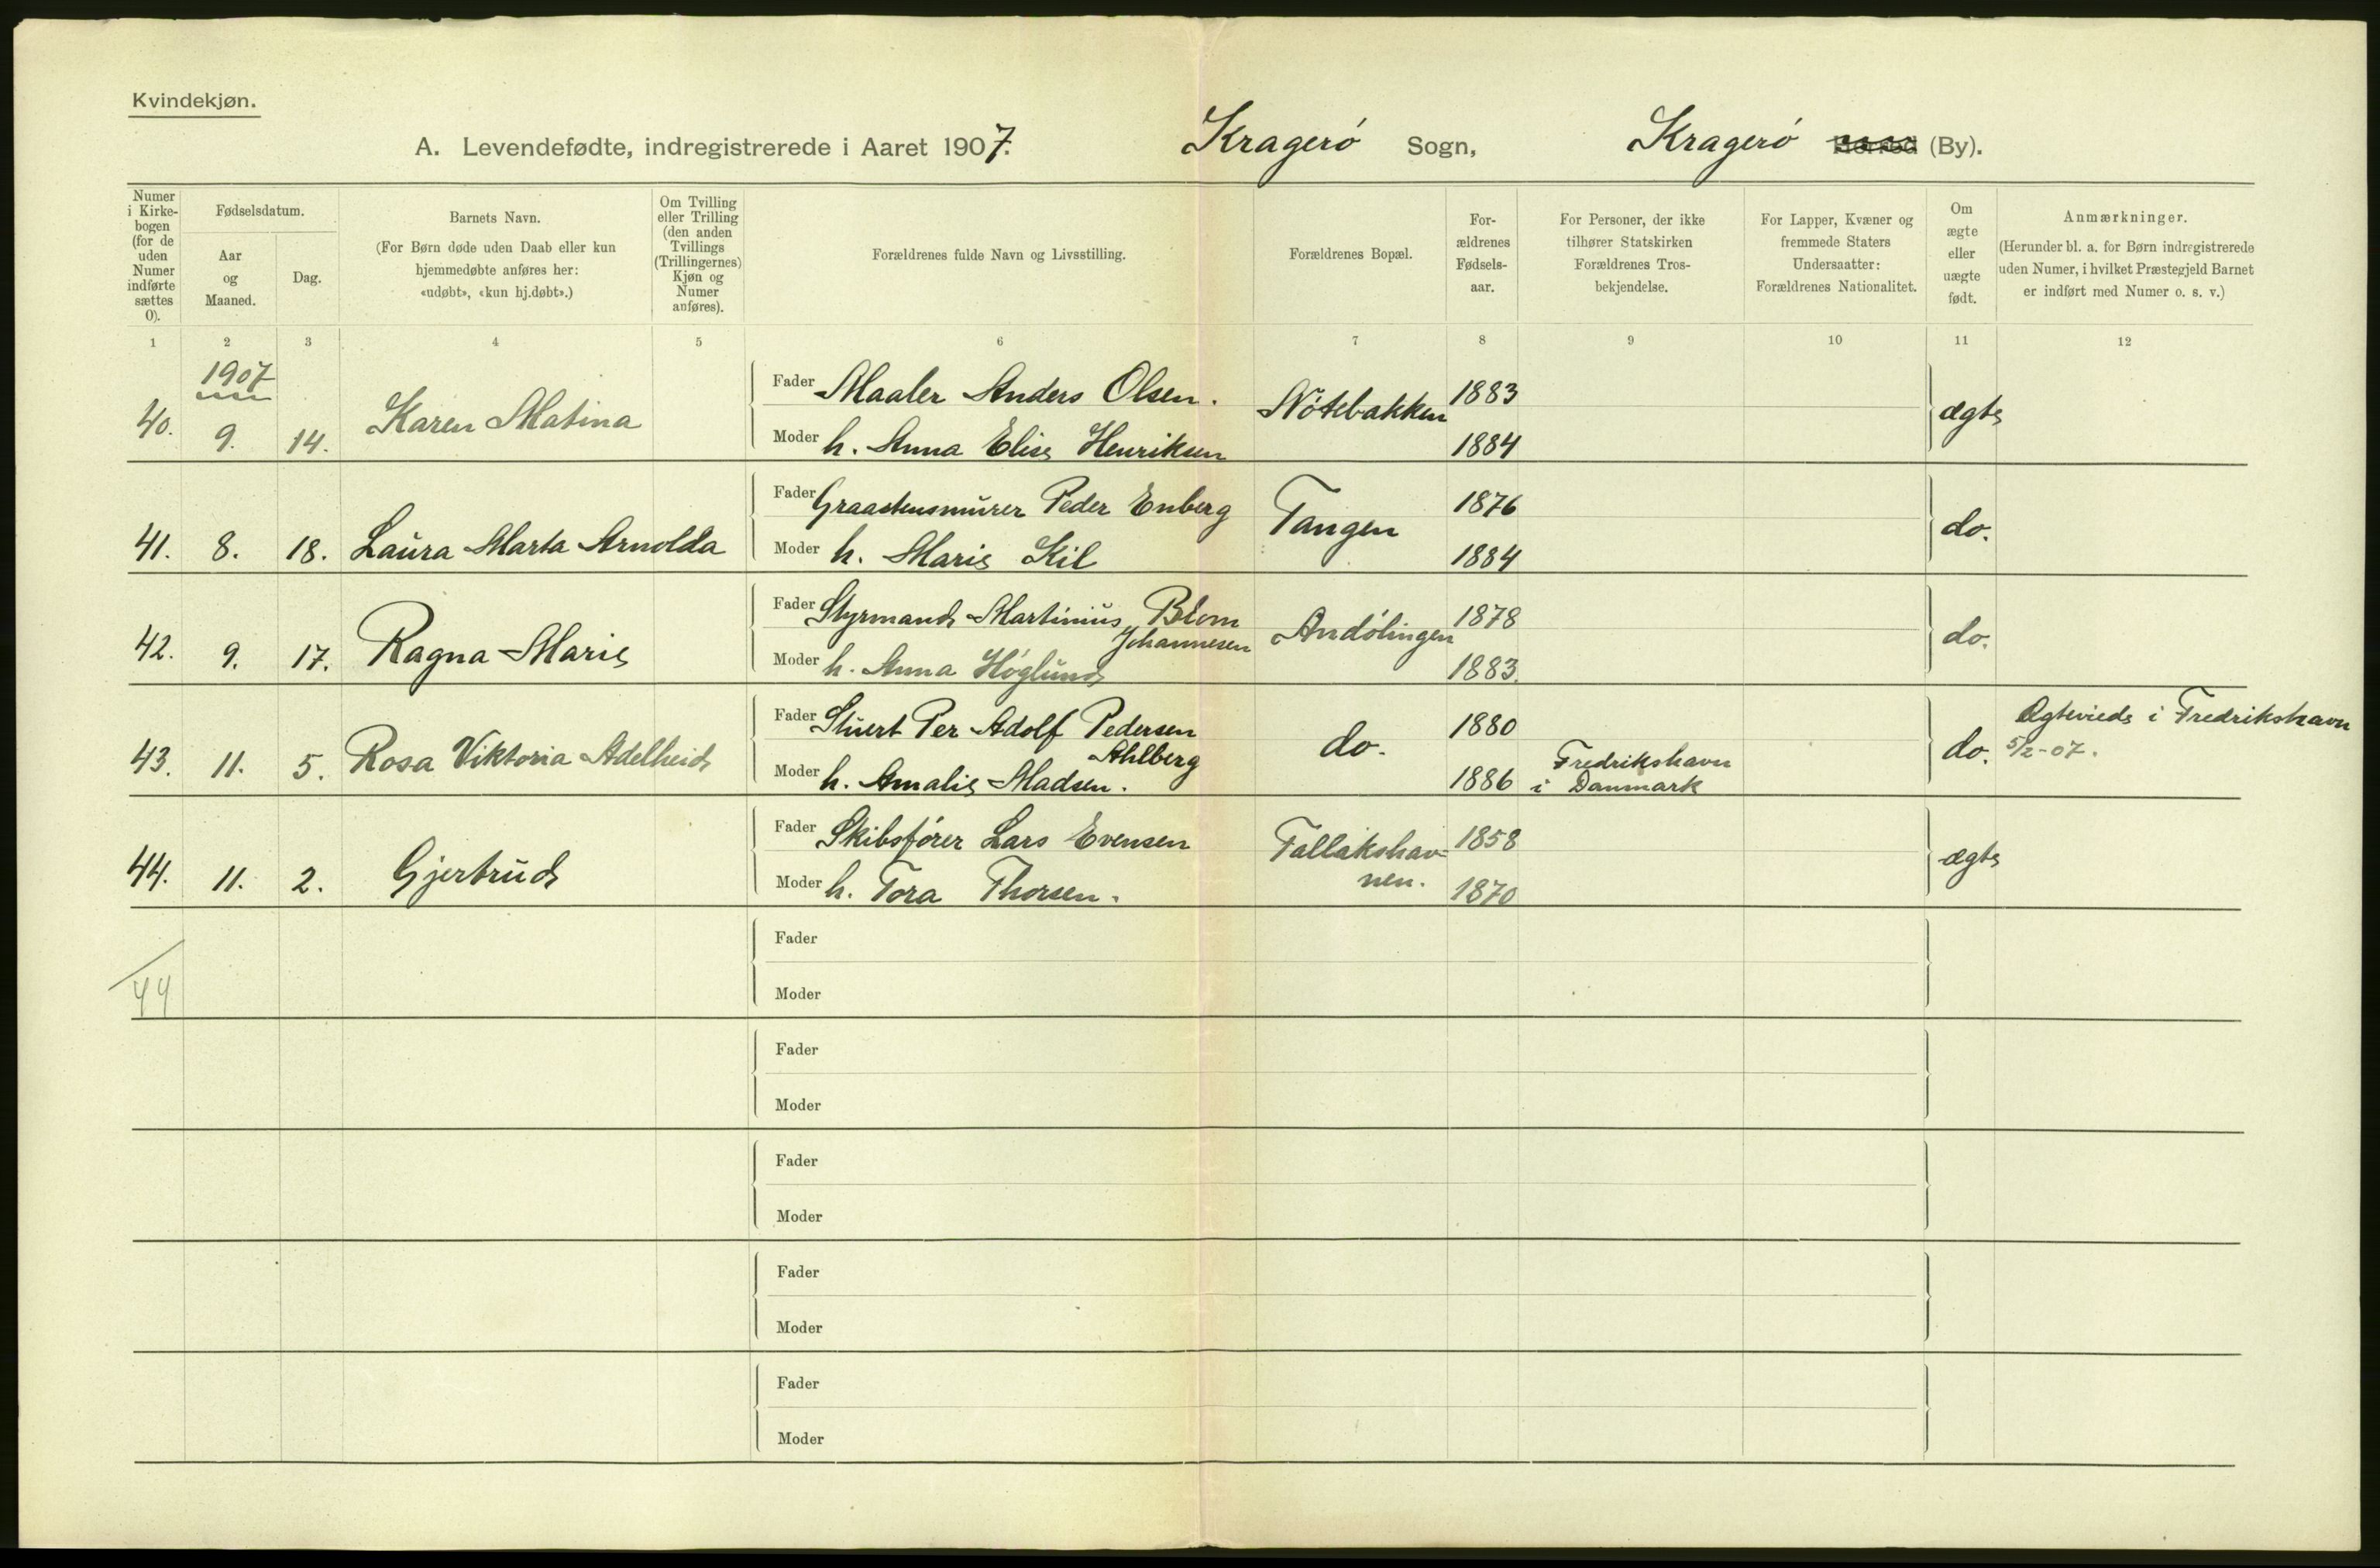 Kvindekjøn.
A. Levendefødte, indregistrerede i Aaret 1907. Kragerø Sogn, Kragerø Herred (By).
Numer i Kirke-bogen (for de uden Numer indførte sættes 0).
Fødselsdatum.
Aar og Maaned.
Dag.
Barnets Navn.
(For Børn døde uden Daab eller kun
hjemmedøbte anføres her:
«udøbt», «kun hj.døbt».)
Om Tvilling
eller Trilling
(den anden
Tvillings
(Trillingernes)
Kjøn og
Numer
anføres).
Forældrenes fulde Navn og Livsstilling.
Forældrenes Bopæl.
For-
ældrenes
Fødsels-
aar.
For Personer, der ikke
tilhører Statskirken
Forældrenes Tros-
bekjendelse.
For Lapper, Kvæner og
fremmede Staters
Undersaatter:
Forældrenes Nationalitet.
Om
ægte
eller
uægte
født.
Anmærkninger.
(Herunder bl. a. for Børn indregistrerede
uden Numer, i hvilket Præstegjeld Barnet
er indført med Numer o. s. v.)
1 2 3 4 5 6 7 8 9 10 11 12
1907
40. 9. 14. Karen Matina Fader Maaler Anders Olsen. Nøtebakken 1883 ægte
Moder h. Anna Elise Henriksen 1884
41. 8. 18. Laura Marta Arnolda Fader Graastensmurer Peder Enberg Tangen 1876 do.
Moder h. Marie Kil 1884
42. 9. 17. Ragna Marie Fader Styrmand Martinius Blom Andølingen 1878 do.
Johannesen
Moder h. Anna Høglund 1883.
43. 11. 5. Rosa Viktoria Adelheid Fader Stuert Per Adolf Pedersen do. 1880 do. Ægteviede i Fredrikshavn
Ahlberg 5/2-07.
Moder h. Amalie Madsen. 1886 Fredrikshavn
i Danmark
44. 11. 2. Gjertrud Fader Skibsfører Lars Evensen Tallakshav- 1858 ægte
nen.
Moder h. Tora Thorsen. 1870
44
Fader
Moder
Fader
Moder
Fader
Moder
Fader
Moder
Fader
Moder